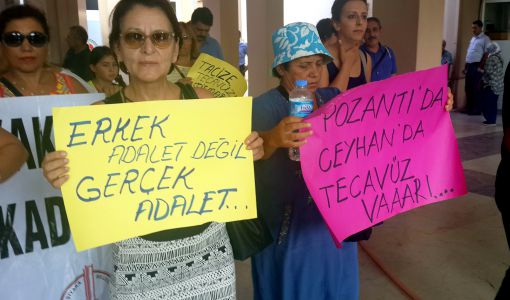 ERKEK
ADALET DEĞİL
GERÇEK
ADALET...
POZANTI'DA
CEYHAN'DA
TECAVÜZ
VAAARI....
TACİZE
TECAVÜZE
KAD